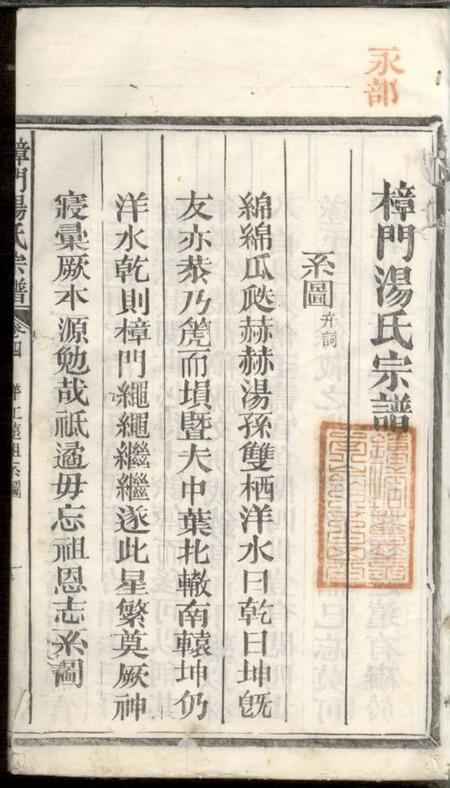 永部
樟門湯氏宗譜
系圖 弁詞
綿綿瓜瓞赫赫湯孫雙栖洋水曰乾曰坤旣
友亦恭乃篪而塤曁夫中葉北轍南轅坤仍
洋水乾則樟門繩繩繼繼遂此星繁奠厥神
寢彙厥本源勉哉祗遹毋忘祖恩志系圖
樟門湯氏宗譜 卷四